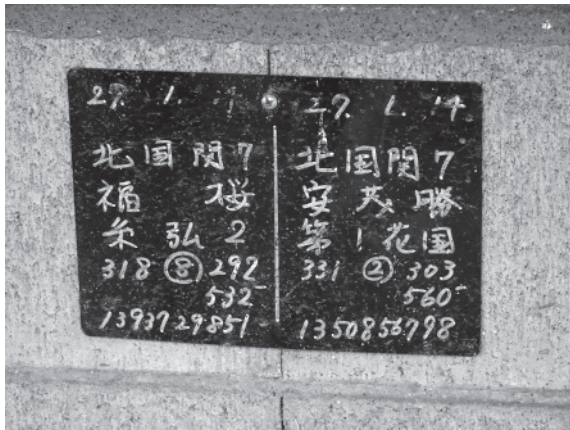 27. 1.
北国関7
福 桜
糸 弘2
318 ⑧ 292
532-
1393729851
27. 1. 14
北国関7
安茂勝
第1花国
331 ② 303
560-
1350856798